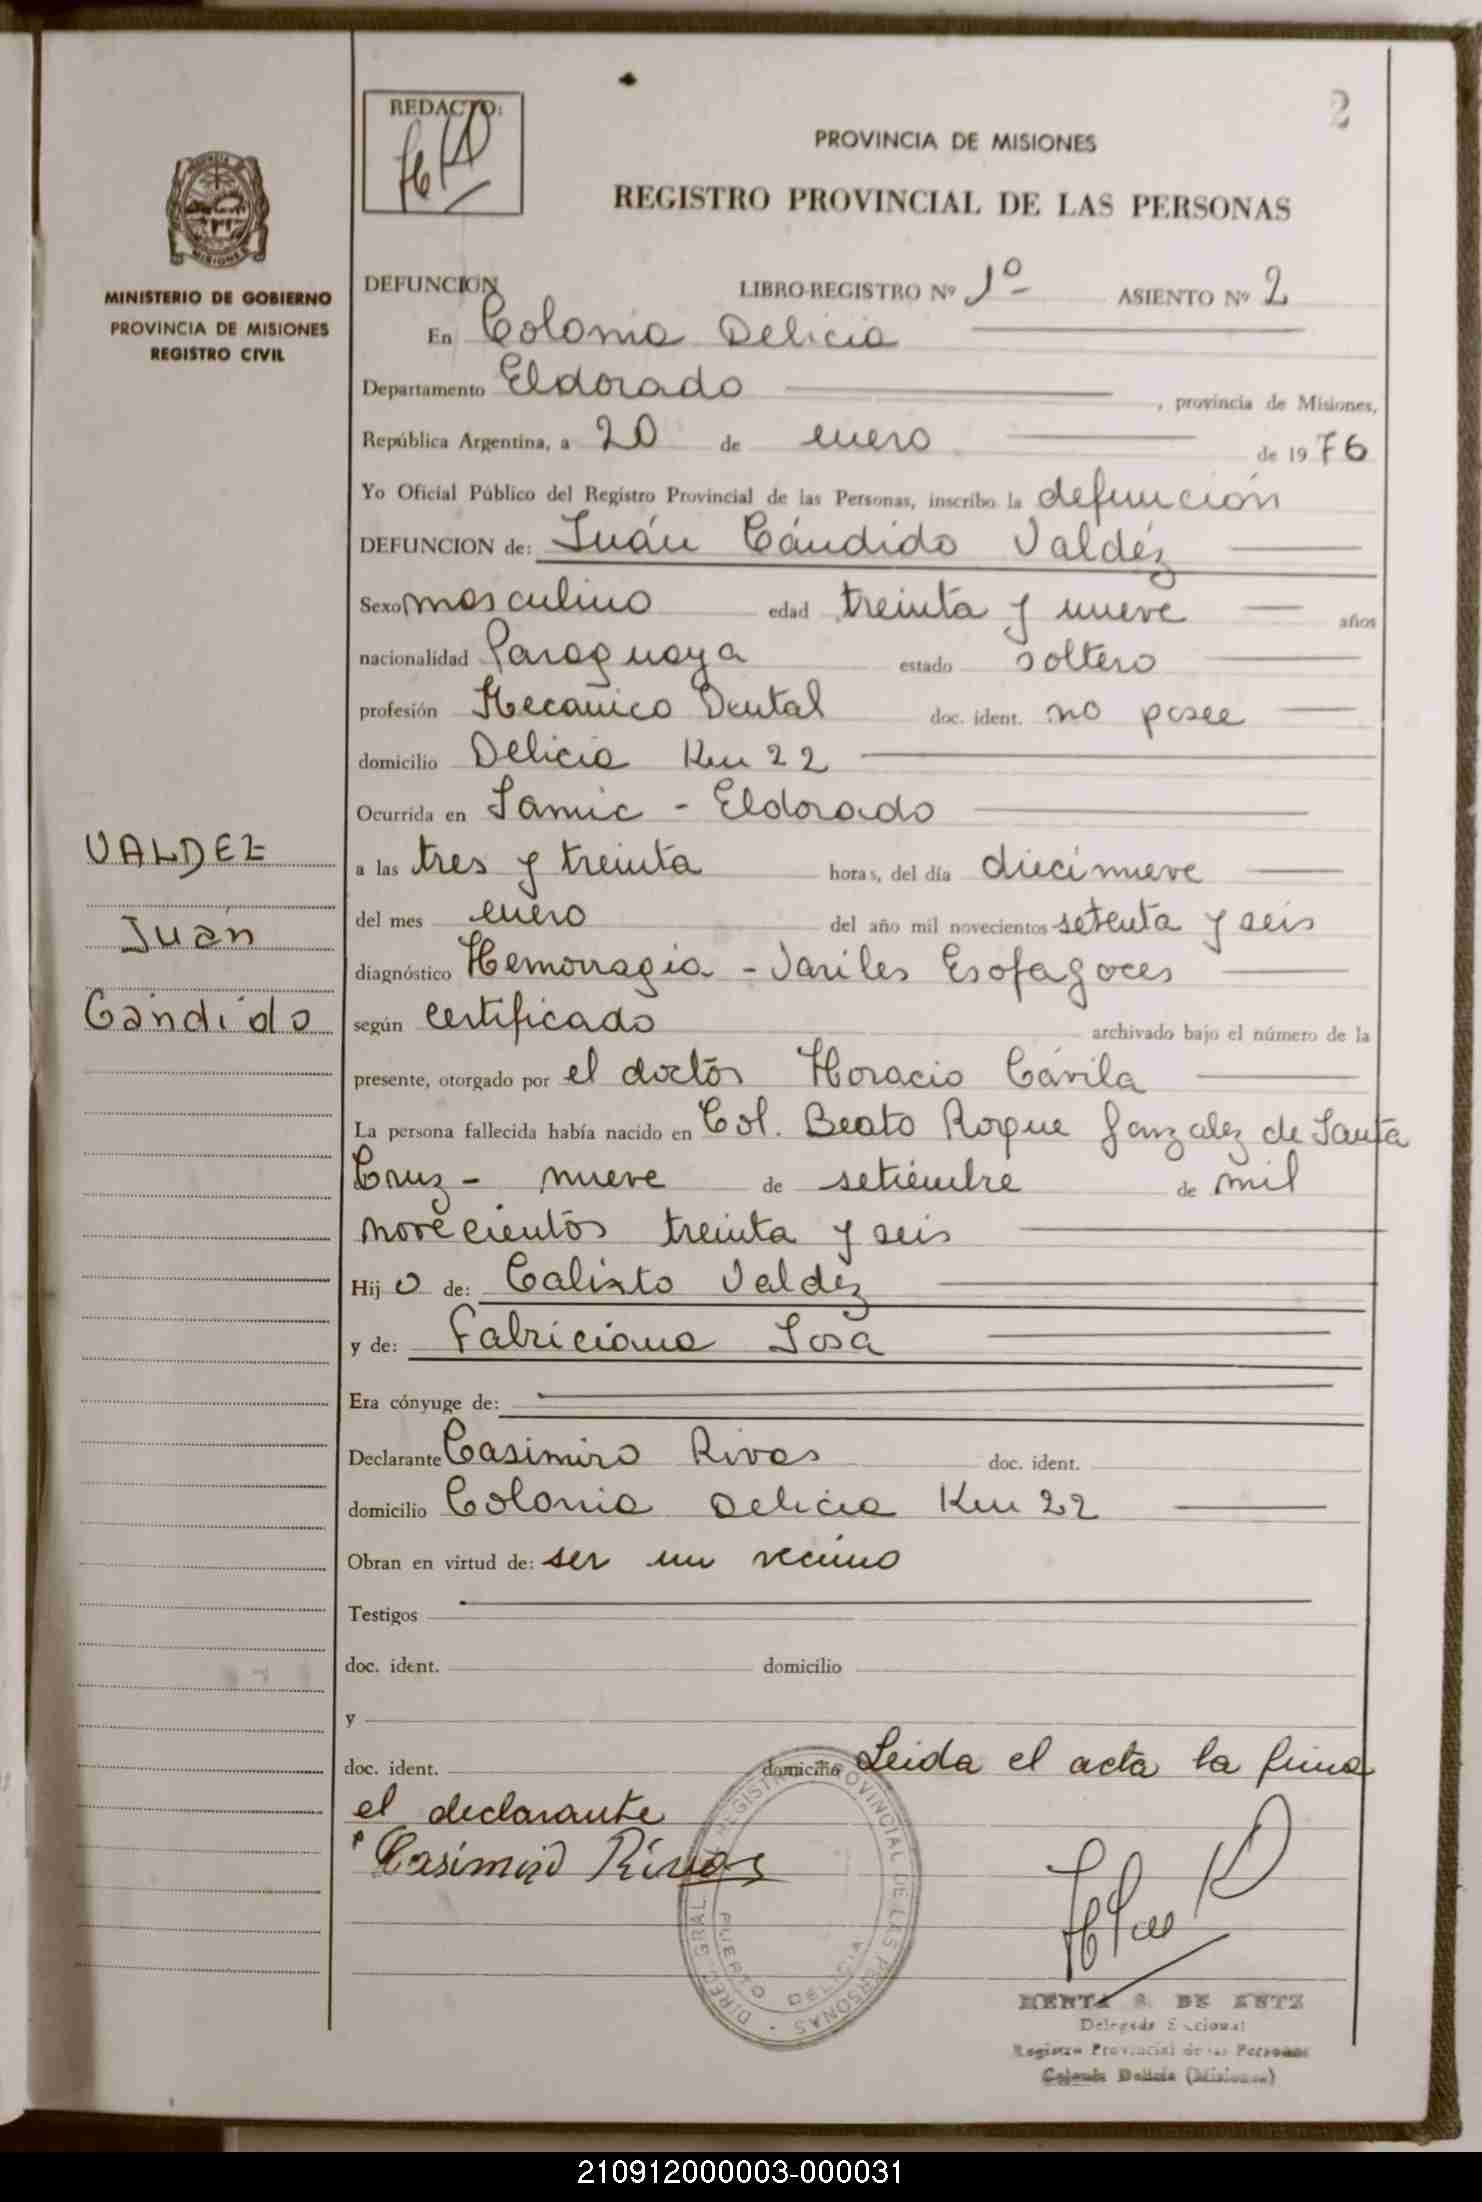 2
REDACTO:
PROVINCIA DE MISIONES
REGISTRO PROVINCIAL DE LAS PERSONAS
MISIONES
MINISTERIO DE GOBIERNO
PROVINCIA DE MISIONES
REGISTRO CIVIL
DEFUNCION LIBRO-REGISTRO Nº 1º ASIENTO Nº 2
En Colonia Delicia
Departamento Eldorado , provincia de Misiones,
República Argentina, a 20 de enero de 1976
Yo Oficial Público del Registro Provincial de las Personas, inscribo la defunción
DEFUNCION de: Juán Cándido Valdéz
Sexo masculino edad treinta y nueve años
nacionalidad Paraguaya estado soltero
profesión Mecanico Dental doc. ident. no posee
domicilio Delicia Km 22
Ocurrida en Samic - Eldorado
a las tres y treinta horas, del día diecinueve
del mes enero del año mil novecientos setenta y seis
diagnóstico Hemorragia - Variles Esofagoces
según certificado archivado bajo el número de la
presente, otorgado por el doctor Horacio Cávila
La persona fallecida había nacido en Col. Beato Roque Gonzalez de Santa
Cruz - nueve de setiembre de mil
novecientos treinta y seis
Hijo de: Calixto Valdez
y de: Fabriciana Sosa
Era cónyuge de:
Declarante Casimiro Rivas doc. ident.
domicilio Colonia Delicia Km 22
Obran en virtud de: ser un vecino
Testigos
doc. ident. domicilio
y
doc. ident. domicilio Leida el acta la firma
el declarante
Casimiro Rivas
VALDEZ
Juán
Cándido
DIREC. GRAL. REGISTRO PROVINCIAL DE LAS PERSONAS
PUERTO DELICIA
DE
Delegada Seccional
Registro Provincial de las Personas
Colonia Delicia (Misiones)
210912000003-000031